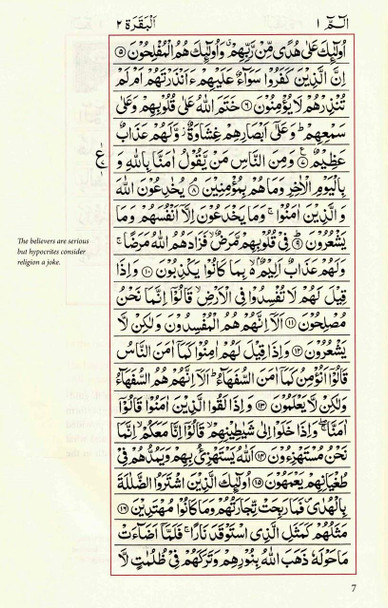 الٓمّٓ ١
اَلْبَقَرَة ٢
اُولٰٓئِكَ عَلٰى هُدًى مِّنْ رَّبِّهِمْ ۙ وَاُولٰٓئِكَ هُمُ الْمُفْلِحُوْنَ ⑤
اِنَّ الَّذِيْنَ كَفَرُوْا سَوَآءٌ عَلَيْهِمْ ءَاَنْذَرْتَهُمْ اَمْ لَمْ
تُنْذِرْهُمْ لَا يُؤْمِنُوْنَ ⑥ خَتَمَ اللّٰهُ عَلٰى قُلُوْبِهِمْ وَعَلٰى
سَمْعِهِمْ ؕ وَعَلٰٓى اَبْصَارِهِمْ غِشَاوَةٌ ۫ وَّلَهُمْ عَذَابٌ
عَظِيْمٌ ⑦ وَمِنَ النَّاسِ مَنْ يَّقُوْلُ اٰمَنَّا بِاللّٰهِ وَ
ع
بِالْيَوْمِ الْاٰخِرِ وَمَا هُمْ بِمُؤْمِنِيْنَ ⑧ يُخٰدِعُوْنَ اللّٰهَ
وَالَّذِيْنَ اٰمَنُوْا ۚ وَمَا يَخْدَعُوْنَ اِلَّآ اَنْفُسَهُمْ وَمَا
يَشْعُرُوْنَ ⑨ فِيْ قُلُوْبِهِمْ مَّرَضٌ ۙ فَزَادَهُمُ اللّٰهُ مَرَضًا ۚ
وَلَهُمْ عَذَابٌ اَلِيْمٌ ۢ ۙ بِمَا كَانُوْا يَكْذِبُوْنَ ⑩ وَاِذَا
قِيْلَ لَهُمْ لَا تُفْسِدُوْا فِي الْاَرْضِ ۙ قَالُوْٓا اِنَّمَا نَحْنُ
مُصْلِحُوْنَ ⑪ اَلَآ اِنَّهُمْ هُمُ الْمُفْسِدُوْنَ وَلٰكِنْ لَّا
يَشْعُرُوْنَ ⑫ وَاِذَا قِيْلَ لَهُمْ اٰمِنُوْا كَمَآ اٰمَنَ النَّاسُ
قَالُوْٓا اَنُؤْمِنُ كَمَآ اٰمَنَ السُّفَهَآءُ ؕ اَلَآ اِنَّهُمْ هُمُ السُّفَهَآءُ
وَلٰكِنْ لَّا يَعْلَمُوْنَ ⑬ وَاِذَا لَقُوا الَّذِيْنَ اٰمَنُوْا قَالُوْٓا
اٰمَنَّا ۚ وَاِذَا خَلَوْا اِلٰى شَيٰطِيْنِهِمْ ۙ قَالُوْٓا اِنَّا مَعَكُمْ ۙ اِنَّمَا
نَحْنُ مُسْتَهْزِءُوْنَ ⑭ اَللّٰهُ يَسْتَهْزِئُ بِهِمْ وَيَمُدُّهُمْ فِيْ
طُغْيَانِهِمْ يَعْمَهُوْنَ ⑮ اُولٰٓئِكَ الَّذِيْنَ اشْتَرَوُا الضَّلٰلَةَ
بِالْهُدٰى ۪ فَمَا رَبِحَتْ تِّجَارَتُهُمْ وَمَا كَانُوْا مُهْتَدِيْنَ ⑯
مَثَلُهُمْ كَمَثَلِ الَّذِي اسْتَوْقَدَ نَارًا ۚ فَلَمَّآ اَضَآءَتْ
مَا حَوْلَهٗ ذَهَبَ اللّٰهُ بِنُوْرِهِمْ وَتَرَكَهُمْ فِيْ ظُلُمٰتٍ لَّا
The believers are serious
but hypocrites consider
religion a joke.
7